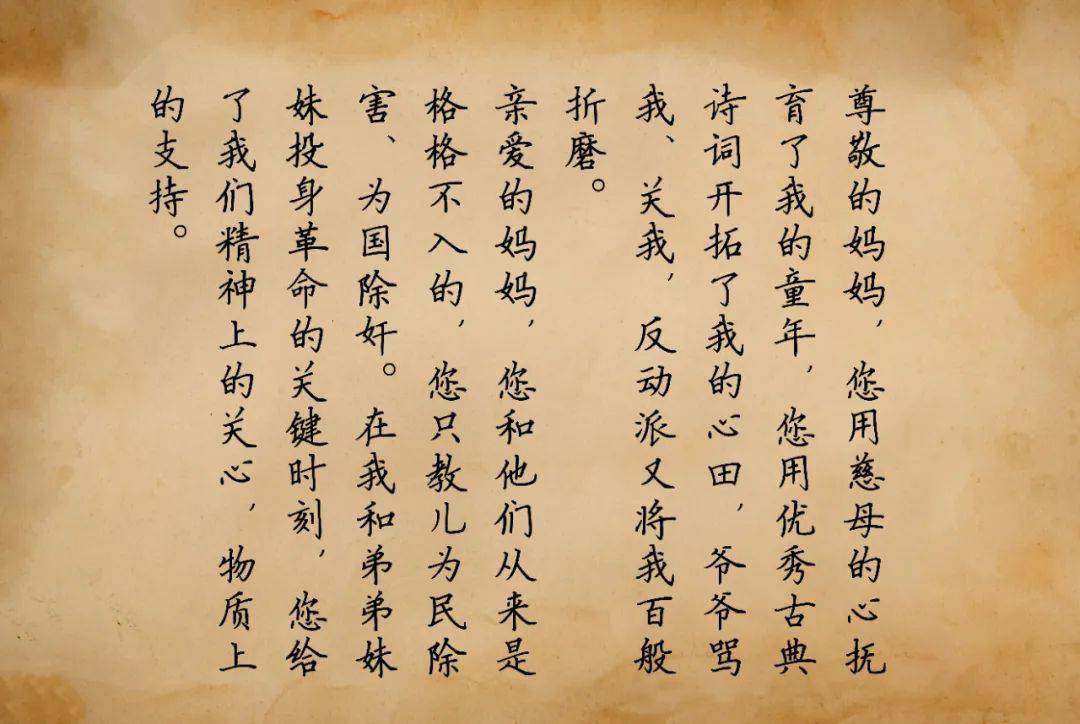 尊敬的妈妈，您用慈母的心抚
育了我的童年，您用优秀古典
诗词开拓了我的心田，爷爷骂
我、关我，反动派又将我百般
折磨。
亲爱的妈妈，您和他们从来是
格格不入的，您只教儿为民除
害、为国除奸。在我和弟弟妹
妹投身革命的关键时刻，您给
了我们精神上的关心，物质上
的支持。